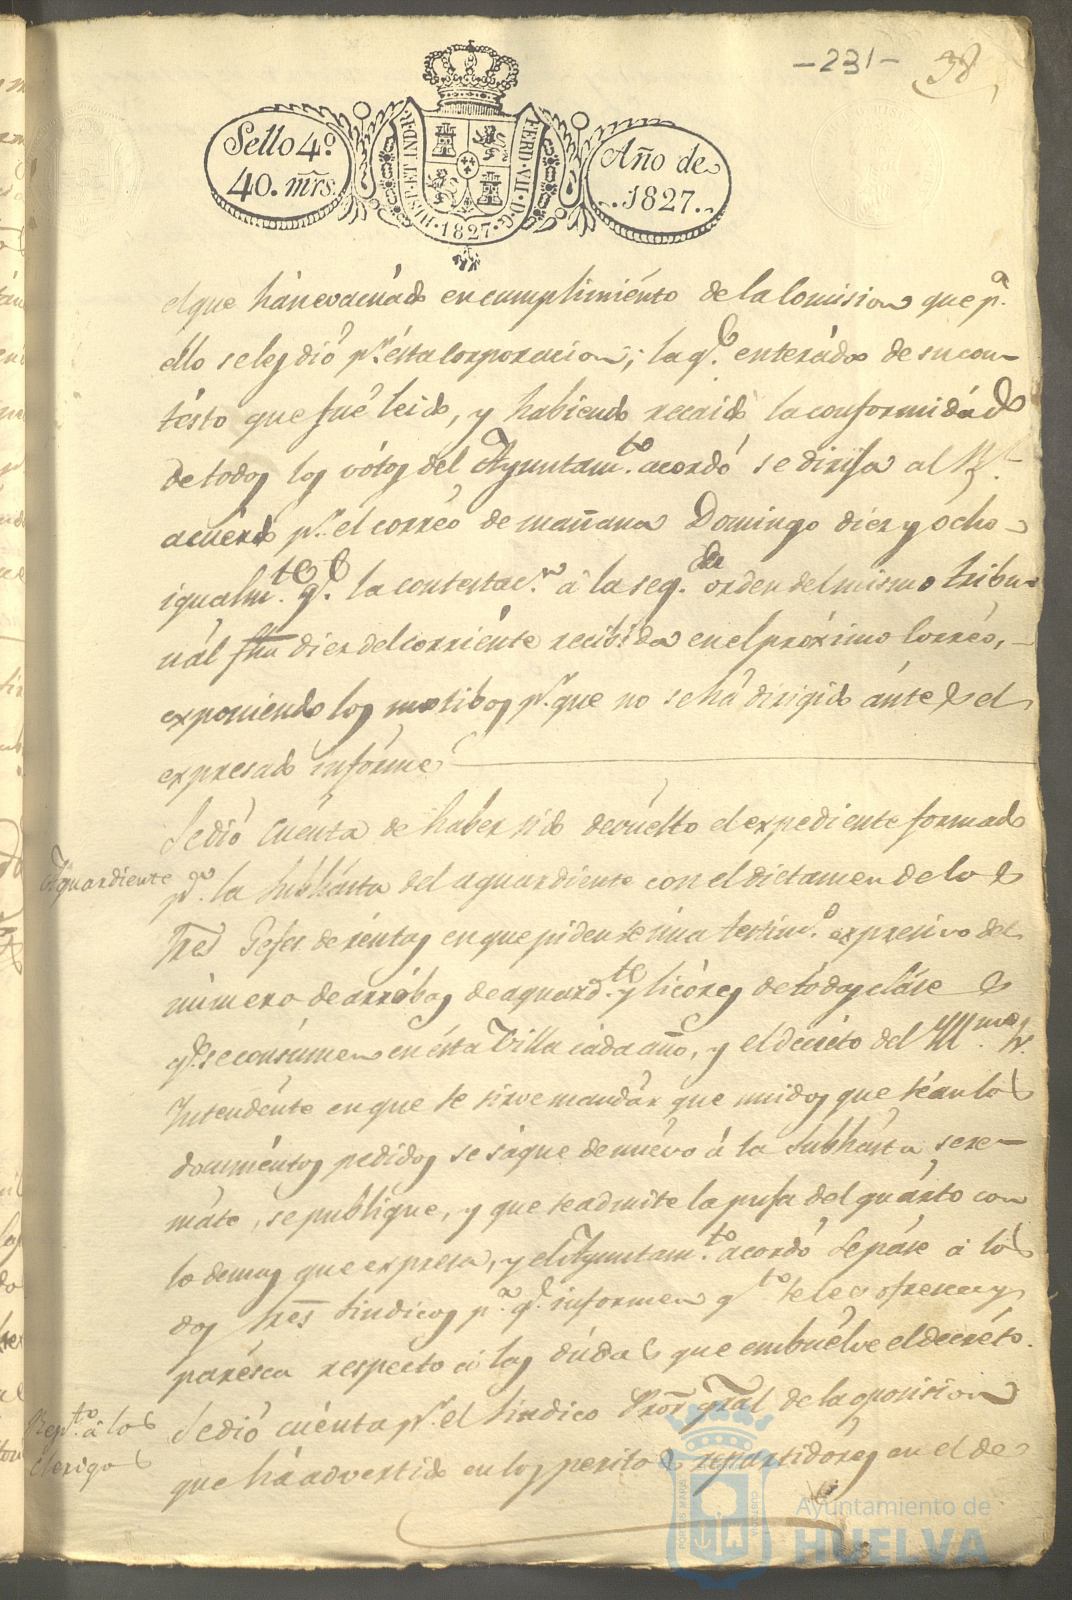 -231- 38
Sello 4º
40. mrs.
HISP. ET IND. R.
FERD. VII. D. G.
·1827·
Año de
1827.
el que hán evacuádo en cumplimiénto de la Comision que pª.
ello se les dió pr. ésta Corporacion; la ql. enteráda de su con-
tésto que fué leido, y habiendo recaido la conformidád
de todos los vótos del Ayuntamto. acordó se dirija al Rl.
acuérdo pr. el corréo de mañana Domingo diez y ócho
igualmte. ql. la contestacn. á la segda. órden del mismo tribu-
nál fha diez del corriénte recibida en el próximo Corréo,
exponiendo los motibos pr. que no se há dirigido ántes el
expresado infórme
Se dió cuénta de habér sido devuélto el expediente formado
Aguardiente
pª. la subhásta del aguardiente con el dictamen de los
Sres Gefes de réntas en que piden se una testimº. expresivo del
número de arróbas de aguardte. y licóres de todas cláses
qe. se consúmen en ésta Villa cada año, y el decréto del
Intendénte en que se sirve mandár que unidos que séan los
documéntos pedidos se sáque de nuévo á la Subhásta, se re-
máte, se publique, y que se admite la puja del quárto con
lo demas que expresa, y el Ayuntamto. acordó se páse á los
dos Sres Sindicos pª. qe. informen qto. se les ofresca y
parésca respécto á las dúdas que embuélve el decréto.
Repto. á los
Clerigos
Se dió cuénta pr. el Sindico Pror. gral de la oposicion
que há advertido en los peritos repartidóres en el de
PORTUS MARIS
CUSTODIA
Ayuntamiento de
HUELVA